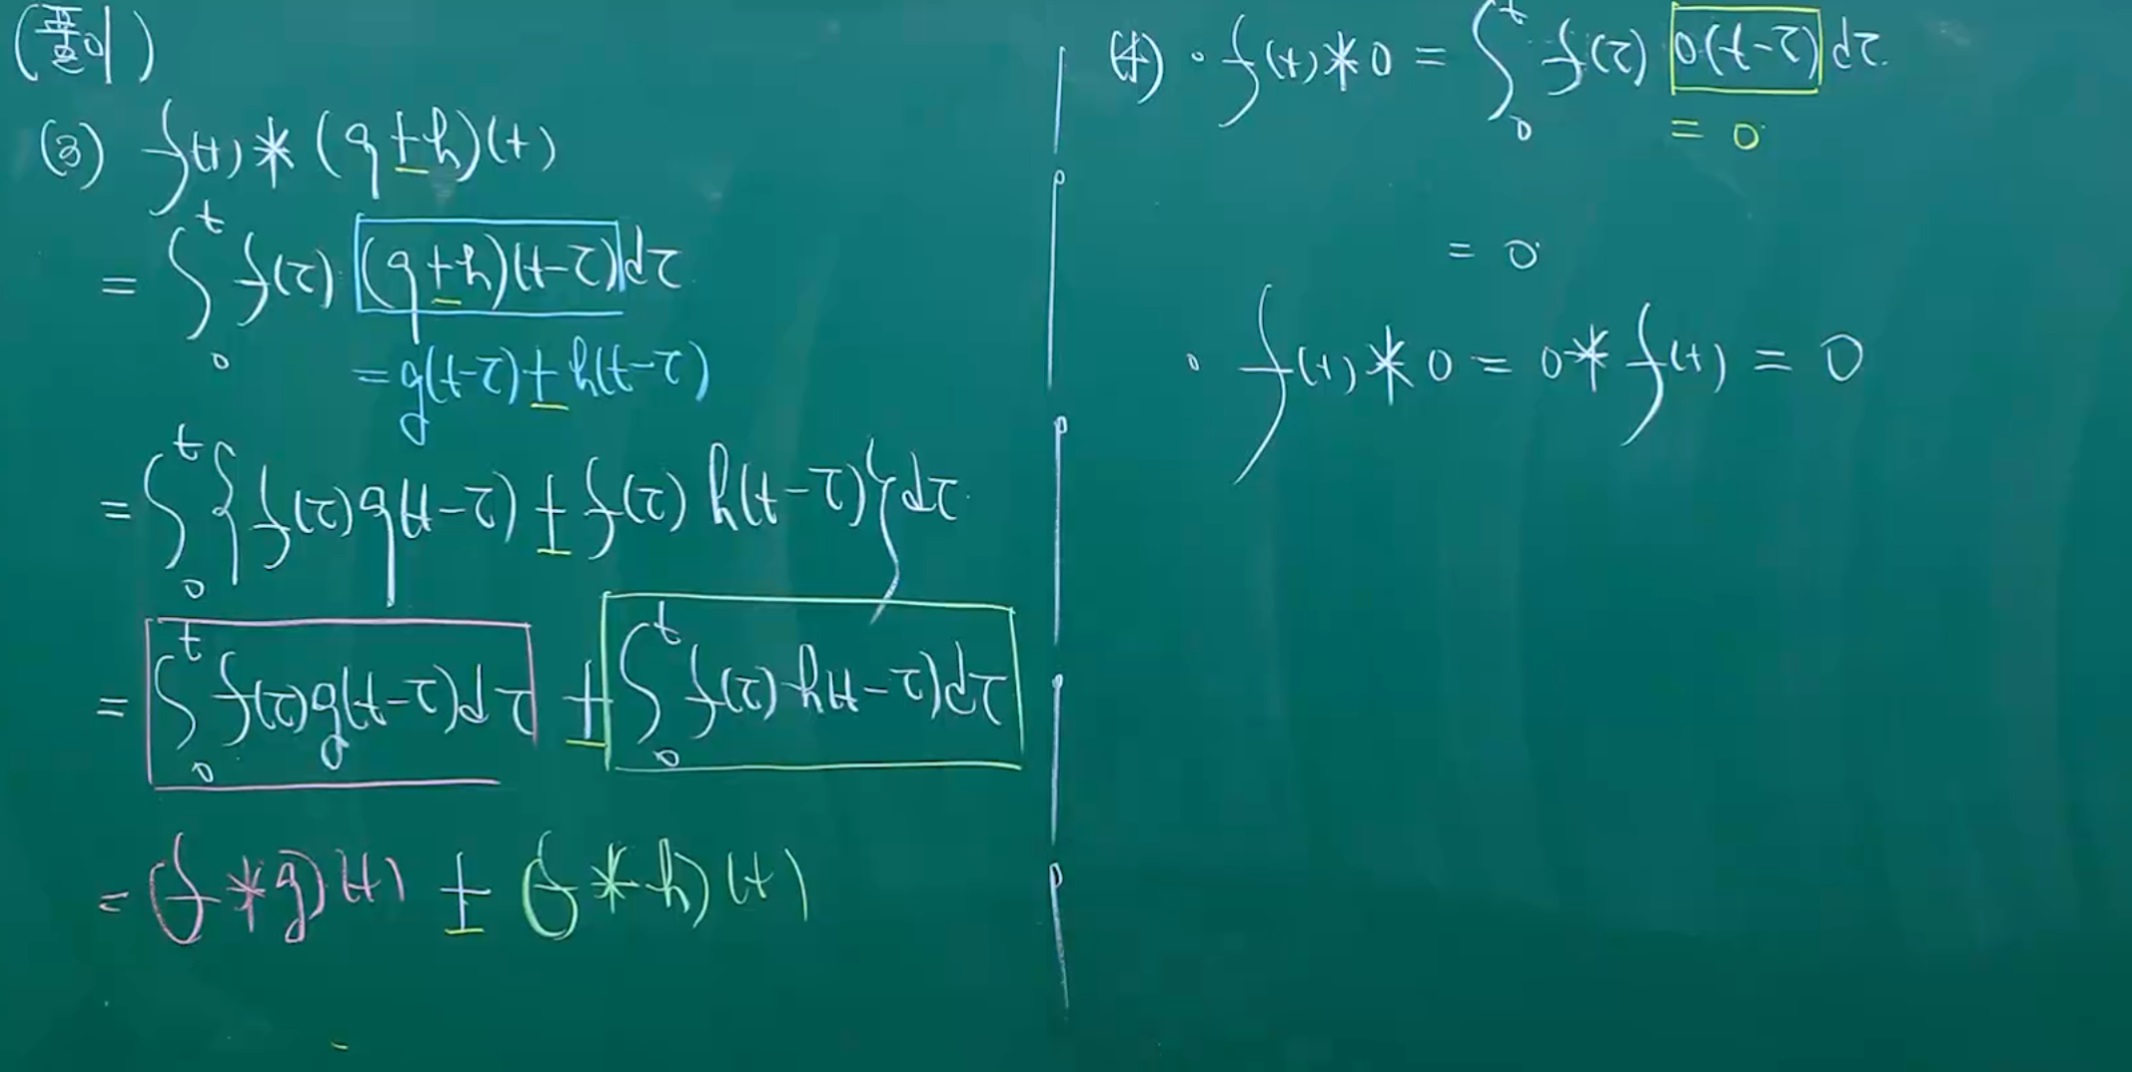 (풀이)
(3) f(t)*(g±h)(t)
= ∫₀ᵗ f(τ)·(g±h)(t-τ)dτ
= g(t-τ)±h(t-τ)
= ∫₀ᵗ {f(τ)g(t-τ) ± f(τ)h(t-τ)}dτ
= ∫₀ᵗ f(τ)g(t-τ)dτ ± ∫₀ᵗ f(τ)h(t-τ)dτ
= (f*g)(t) ± (f*h)(t)
(4) · f(t)*0 = ∫₀ᵗ f(τ) 0(t-τ)dτ
= 0
= 0
· f(t)*0 = 0*f(t) = 0